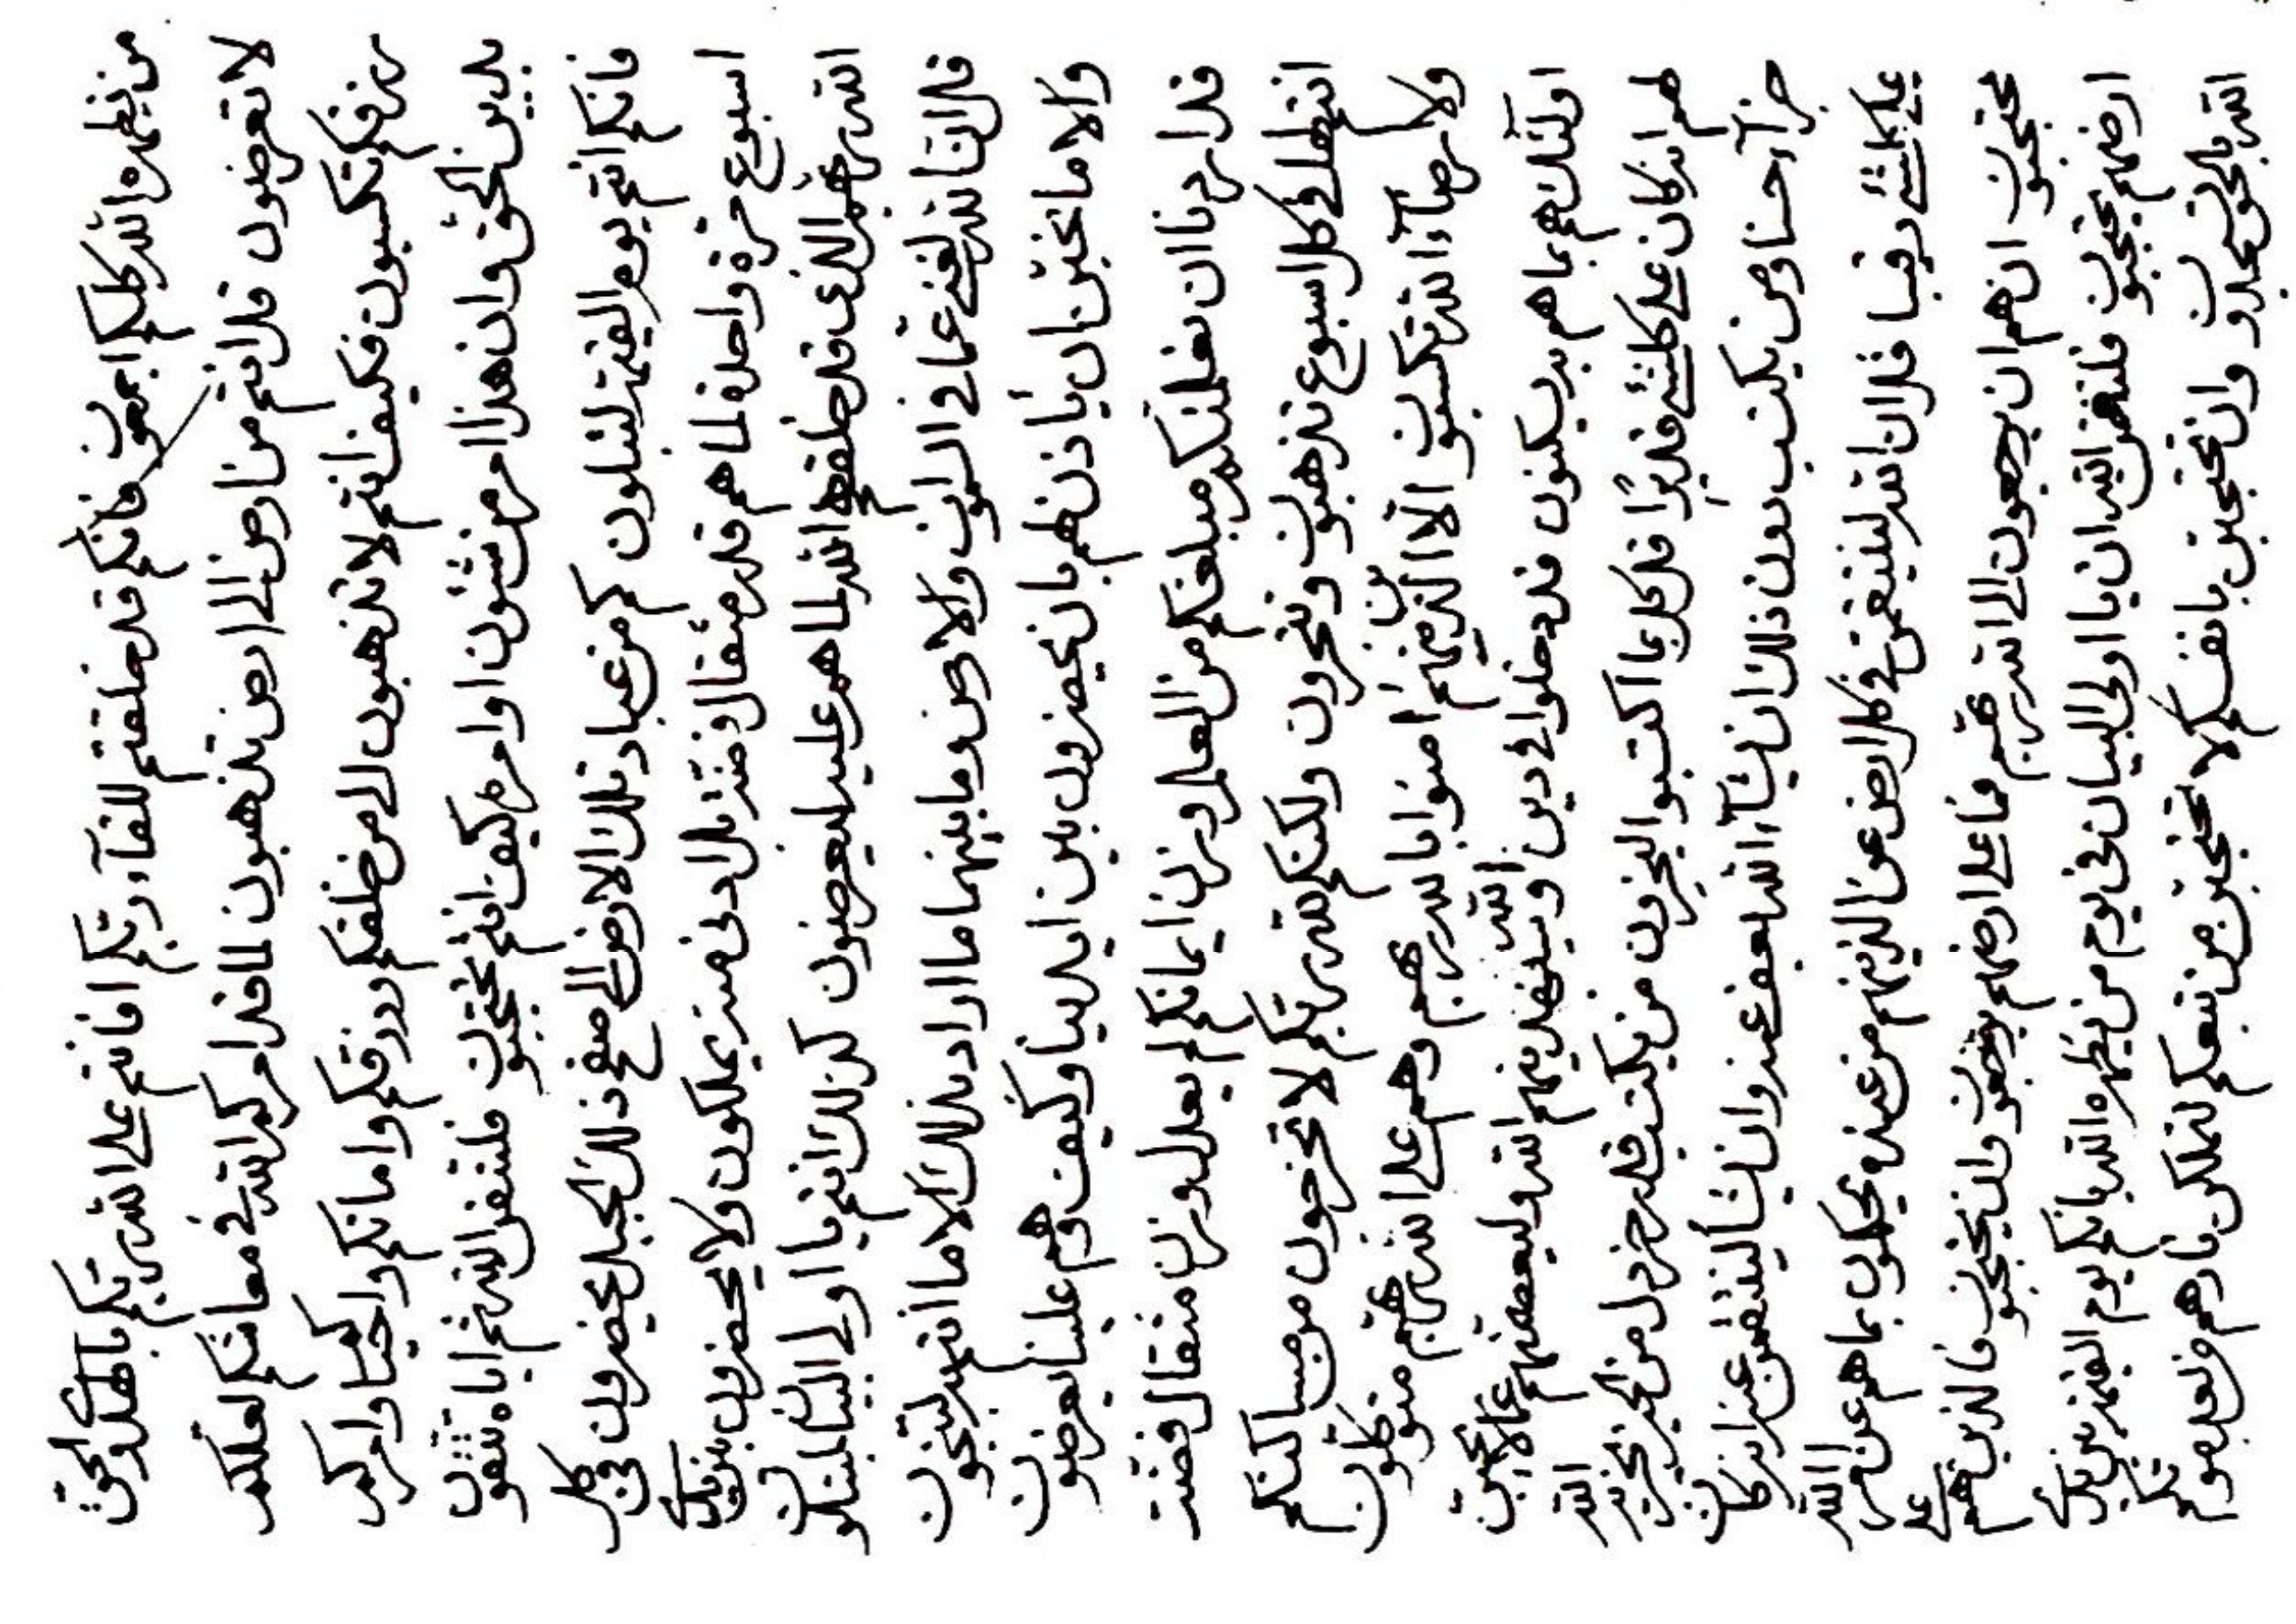 من يظهره الله كلكم اجمعون فانكم قد خلقتم للقآء ربكم افانتم على الله ربكم بالهدى والحق
لا تعرضون قل انتم من ارض الى ارض تذهبون لما قد امركم الله في معاشكم لعلكم
رزقكم تكسبون فكيف انتم لا تذهبون الى من خلقكم ورزقكم واماتكم واحياكم وامركم
بدين الحق وان هذا امر من شئون اوامره كيف انتم تحتجبون فلتتقن الله ثم اياه تتقون
فانكم انتم يوم القيمة لتبتلون كم من عباد تلك الارض الى صقع ذلك الجبل يحضرون في كل
اسبوع مرة واحدة لما هم قدر مثقال فضة بل ادنى منه يملكون ولا يحضرون بين يدي
الله ربهم الذى قد خلقهم الله لما هم عليه ليعرضون كذلك انتم يا اولى البيان لتبتلون
قل ان الله لغنى عما في السموات والارض وما بينهما ما اراد بذلك الا ما انتم به لتنجون
والا ما نخبرن ان ياذن لهم بان يحضرون بين ايدينا وكيف وهم علينا يعرضون
قل اردنا ان نعلمنكم مبلغكم من العلم وزن ايمانكم لم يعدل وزن مثقال فضة
انتم لها في كل اسبوع تذهبون وتتجرون ولكنكم لله ربكم لا تخرجون من مساكنكم
ولا رضآء الله تكسبون الا الذينهم امنوا بالله ربهم وهم على الله ربهم متوكلون
اولئك هم بما هم به يسكنون قد دخلوا في دين الله وسينقذنهم الله وليعصمنهم عما لا يحبون
لهم انه كان على كل شئ قديرا قل كل بما اكتسبوا ليجزون من يكتسب قدر خردل من الخير يجزيه الله
جزآء حسنا ومن يكتسب دون ذلك ان يشآء الله يعف عنه وان يشأ لينتقمن عنه انه كان
على كل شئ رقيبا قل ان الله لينتقمن في كل ارض عن الذينهم من عنده يحكمون بما هم عن امر الله
محتجبون ان هم ان يرجعون الى الله ربهم فما على ارضهم يتعبون وان يحتجبون فالذين هم على
ارضهم يحتجبون فلتتقن الله ان يا اولى البيان في يوم من يظهره الله بانكم يوم القيمة بين يدي
الله بالحق تسجدون وان تحتجبن بانفسكم لا تحتجبن من تبعكم لتملكن نارهم